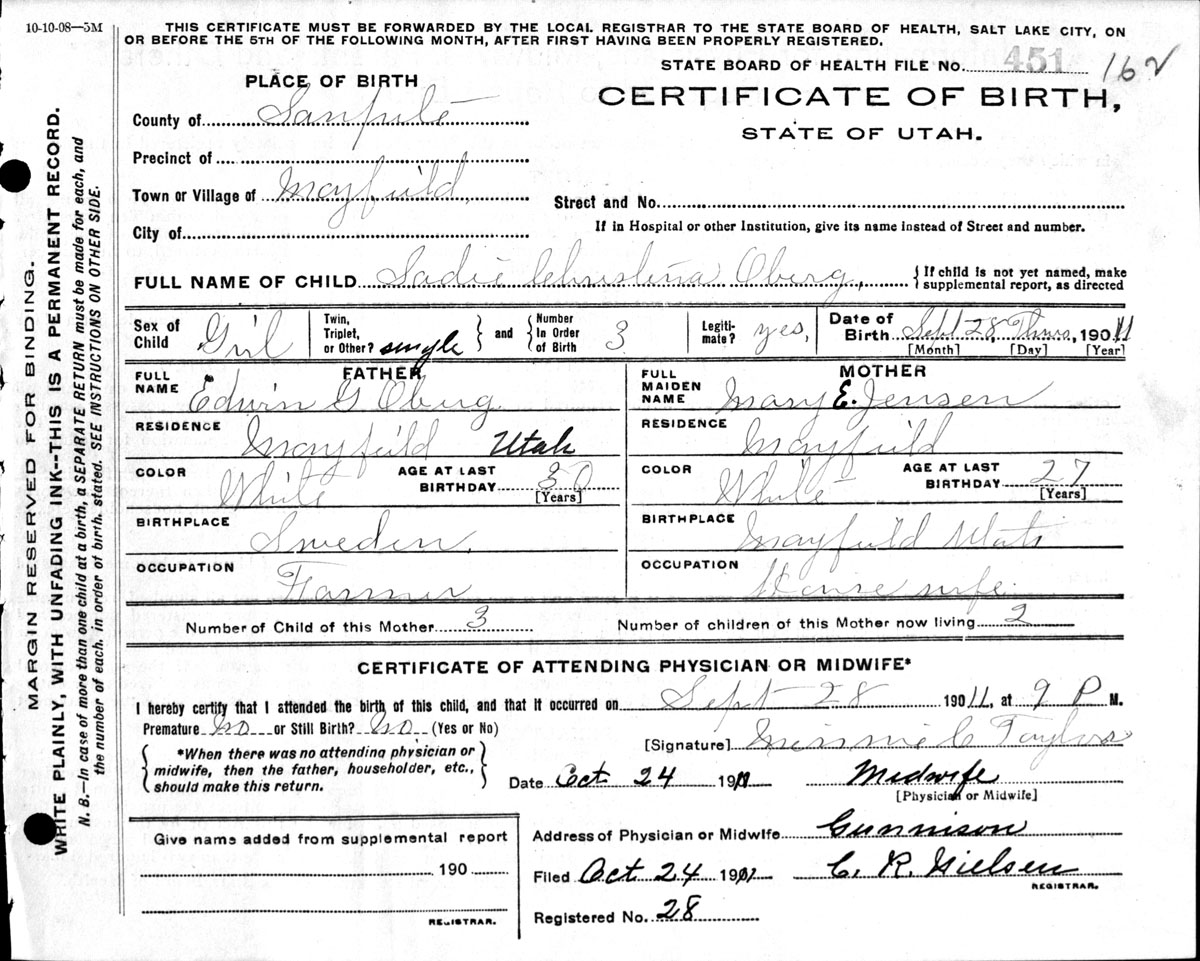 10-10-08—5M
THIS CERTIFICATE MUST BE FORWARDED BY THE LOCAL REGISTRAR TO THE STATE BOARD OF HEALTH, SALT LAKE CITY, ON
OR BEFORE THE 5TH OF THE FOLLOWING MONTH, AFTER FIRST HAVING BEEN PROPERLY REGISTERED.
STATE BOARD OF HEALTH FILE No. 451 162
PLACE OF BIRTH
CERTIFICATE OF BIRTH,
STATE OF UTAH.
County of Sanpete
Precinct of
Town or Village of Mayfield
Street and No.
City of
If in Hospital or other Institution, give its name instead of Street and number.
FULL NAME OF CHILD Sadie Christina Oberg, { If child is not yet named, make
supplemental report, as directed
Sex of Child Girl
Twin, Triplet, or Other? single } and { Number In Order of Birth 3
Legiti-mate? yes,
Date of Birth Sept 28, Thurs, 19011
[Month] [Day] [Year]
FATHER
FULL NAME Edwin G Oberg.
RESIDENCE Mayfield Utah
COLOR White AGE AT LAST BIRTHDAY 30 [Years]
BIRTHPLACE Sweden.
OCCUPATION Farmer
MOTHER
FULL MAIDEN NAME Mary E. Jensen
RESIDENCE Mayfield
COLOR White AGE AT LAST BIRTHDAY 27 [Years]
BIRTHPLACE Mayfield Utah
OCCUPATION House wife.
Number of Child of this Mother 3 Number of children of this Mother now living 2
CERTIFICATE OF ATTENDING PHYSICIAN OR MIDWIFE*
I hereby certify that I attended the birth of this child, and that it occurred on Sept 28 19011, at 9 P M.
Premature No or Still Birth? No (Yes or No)
{ *When there was no attending physician or
midwife, then the father, householder, etc.,
should make this return. }
[Signature] Minnie C Taylor
Date Oct 24 1911 Midwife
[Physician or Midwife]
Give name added from supplemental report
190
REGISTRAR.
Address of Physician or Midwife Gunnison
Filed Oct 24 1911 C. R. Nielsen
REGISTRAR.
Registered No. 28
MARGIN RESERVED FOR BINDING.
WRITE PLAINLY, WITH UNFADING INK--THIS IS A PERMANENT RECORD.
N. B.—In case of more than one child at a birth, a SEPARATE RETURN must be made for each, and
the number of each, in order of birth, stated. SEE INSTRUCTIONS ON OTHER SIDE.